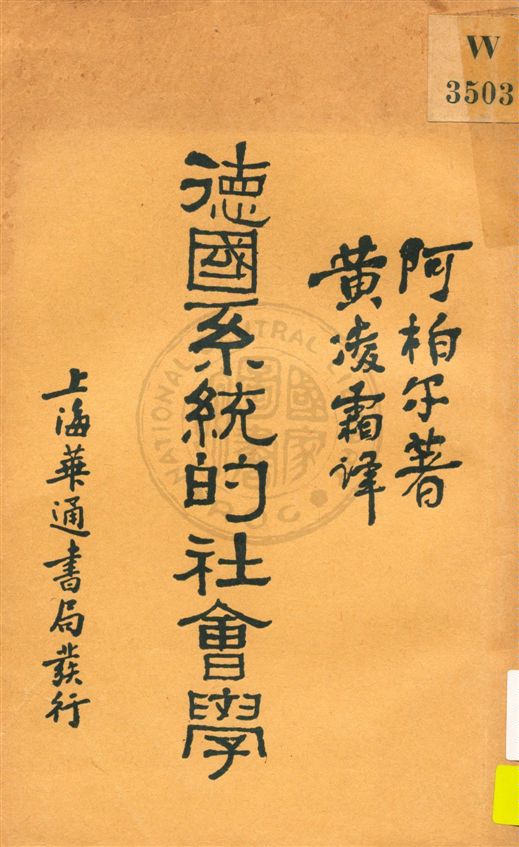 W
3503
阿柏尔著
黄凌霜譯
德國系統的社會學
上海華通書局發行
NATIONAL CENTRAL LIBRARY
R.O.C.
國家圖書館